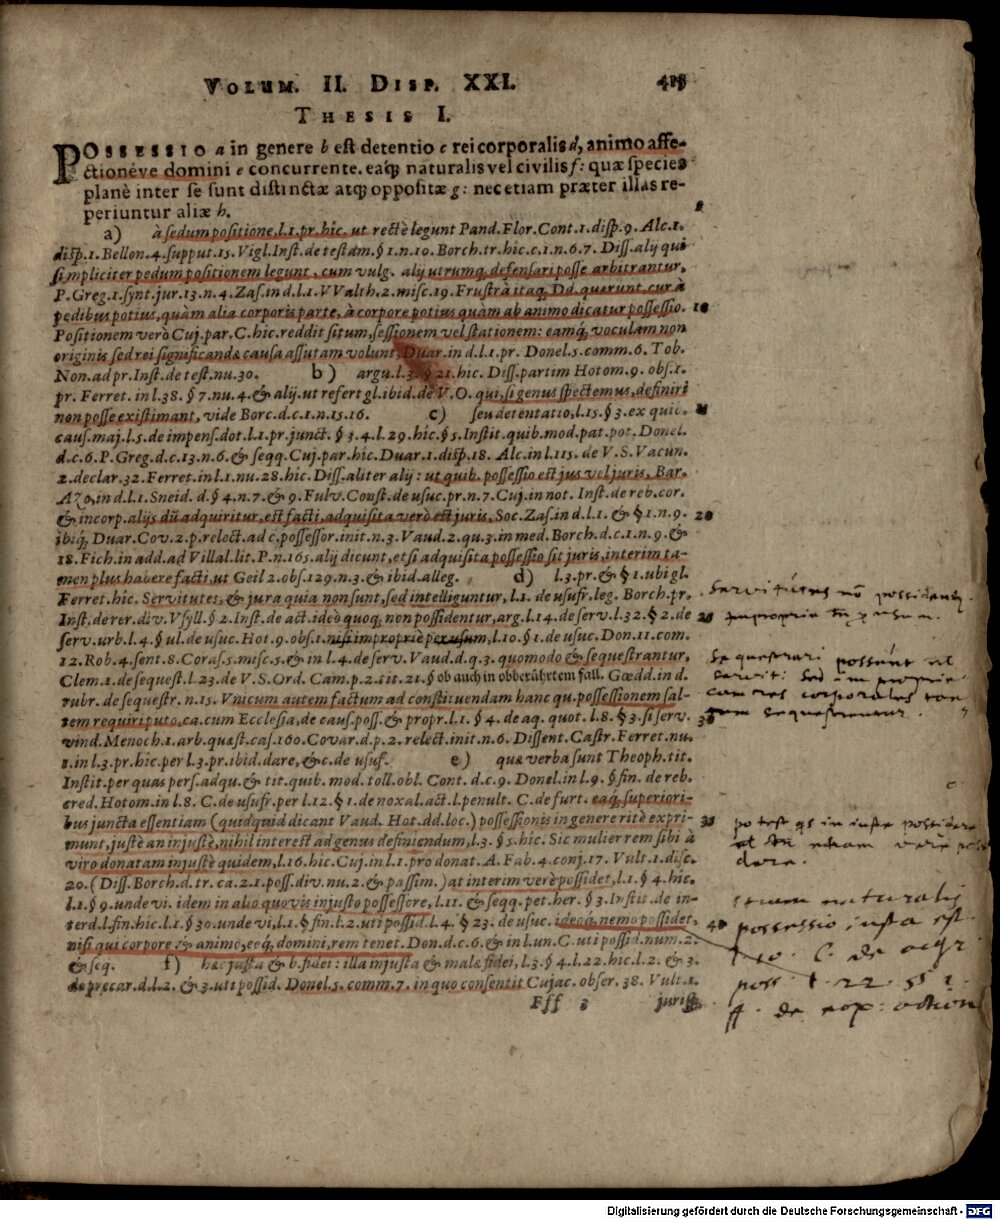 VOLUM. II. DISP. XXI. 413
THESIS I.
POSSESSIO a in genere b est detentio c rei corporalis d, animo affe-
ctioneve domini e concurrente. eaq́; naturalis vel civilis f: quæ species
planè inter se sunt distinctæ atq; oppositæ g: nec etiam præter illas re-
periuntur aliæ h.
a) à sedum positione, l.1. pr. hic. ut rectè legunt Pand. Flor. Cont. 1. disp. 9. Alc. 1.
disp. 1. Bellon. 4. supput. 15. Vigl. Inst. de testam. § 1. n. 10. Borch. tr. hic. c. 1. n. 6. 7. Diss. alij qui
simpliciter pedum positionem legunt, cum vulg. alij utrumq; defensari posse arbitrantur,
P. Greg. 1. synt. jur. 13. n. 4. Zas. in d. l. 1. VValth. 2. misc. 19. Frustrà itaq; Dd. quærunt. cur à
pedibus potius, quàm alia corporis parte, à corpore potius quàm ab animo dicatur possessio. 10
Positionem verò Cuj. par. C. hic. reddit situm, sessionem vel stationem: eamq́; voculam non
originis sed rei significandæ causa assutam volunt, Duar. in d. l. 1. pr. Donel. 5. comm. 6. Tob.
Non. ad pr. Inst. de test. nu. 30. b) argu. l. 3. § 21. hic. Diss. partim Hotom. 9. obs. 1.
pr. Ferret. in l. 38. § 7. nu. 4. & alij. ut refert gl. ibid. de V. O. qui, si genus spectemus, definiri
non posse existimant, vide Borc. d. c. 1. n. 15. 16. c) seu detentatio, l. 15. § 3. ex quib.
caus. maj. l. 5. de impens. dot. l. 1. pr. junct. § 3. 4. l. 29. hic. § 5. Instit. quib. mod. pat. pot. Donel.
d. c. 6. P. Greg. d. c. 13. n. 6. & seqq. Cuj. par. hic. Duar. 1. disp. 18. Alc. in l. 115. de V. S. Vacun.
2. declar. 32. Ferret. in l. 1. nu. 28. hic. Diss. aliter alij: ut quib. possessio est jus vel juris, Bar.
Azo, in d. l. 1. Sneid. d. § 4. n. 7. & 9. Fulv. Const. de usuc. pr. n. 7. Cuj. in not. Inst. de reb. cor.
& incorp. alijs dũ adquiritur, est facti, adquisita verò est juris, Soc. Zas. in d. l. 1. & § 1. n. 9. 20
ibiq́; Duar. Cov. 2. p. relect. ad c. possessor. init. n. 3. Vaud. 2. qu. 3. in med. Borch. d. c. 1. n. 9. &
18. Fich. in add. ad Villal. lit. P. n. 165. alij dicunt, etsi adquisita possessio sit juris, interim ta-
men plus habere facti, ut Geil 2. obs. 129. n. 3. & ibid. alleg. d) l. 3. pr. & § 1. ubi gl.
Ferret. hic. Servitutes, & jura quia non sunt, sed intelliguntur, l. 1. de usufr. leg. Borch. pr.
Inst. de rer. div. Vsyll. § 2. Inst. de act. ideò quoq; non possidentur, arg. l. 14. de serv. l. 32. § 2. de
serv. urb. l. 4. § ul. de usuc. Hot. 9. obs. 1. nisi impropriè per usum, l. 10. § 1. de usuc. Don. 11. com.
12. Rob. 4. sent. 8. Coras. 5. misc. 5. & in l. 4. de serv. Vaud. d. q. 3. quomodo & sequestrantur,
Clem. 1. de sequest. l. 23. de V. S. Ord. Cam. p. 2. tit. 21. § ob auch in obberührtem fall. Gœdd. in d.
rubr. de sequestr. n. 15. Vnicum autem factum ad constituendam hanc qu. possessionem sal-
tem requiri puto, ca. cum Ecclesia, de caus. poss. & propr. l. 1. § 4. de aq. quot. l. 8. § 3. si serv. 30
vind. Menoch. 1. arb. quæst. cas. 160. Covar. d. p. 2. relect. init. n. 6. Dissent. Castr. Ferret. nu.
1. in l. 3. pr. hic. per l. 3. pr. ibid. dare, & c. de usuf. e) quæ verba sunt Theoph. tit.
Instit. per quas pers. adqu. & tit. quib. mod. toll. obl. Cont. d. c. 9. Donel. in l. 9. § fin. de reb.
cred. Hotom. in l. 8. C. de usufr. per l. 12. § 1. de noxal. act. l. penult. C. de furt. eaq́; superiori-
bus juncta essentiam (quidquid dicant Vaud. Hot. dd. loc.) possessionis in genere ritè expri-
munt, justè an injustè, nihil interest ad genus definiendum, l. 3. § 5. hic. Sic mulier rem sibi à
viro donatam injustè quidem, l. 16. hic. Cuj. in l. 1. pro donat. A. Fab. 4. conj. 17. Vult. 1. disc.
20. (Diss. Borch. d. tr. ca. 2. 1. poss. div. nu. 2. & passim.) at interim verè possidet, l. 1. § 4. hic.
l. 1. § 9. unde vi. idem in alio quovis injusto possessore, l. 11. & seqq. pet. her. § 3. Instit. de in-
terd. l. fin. hic. l. 1. § 30. unde vi, l. 1. § fin. l. 2. uti possid. l. 4. § 23. de usuc. ideoq́; nemo possidet, 40
nisi qui corpore & animo, eoq́; domini, rem tenet. Don. d. c. 6. & in l. un. C. uti possid. num. 2.
& seq. f) hæc justa & b. fidei: illa injusta & malæ fidei, l. 3. § 4. l. 22. hic. l. 2. & 3.
de precar. d. l. 2. & 3. uti possid. Donel. 5. comm. 7. in quo consentit Cujac. obser. 38. Vult. 1.
Fff 3 juris
Servitutes nõ possident.
improprie tñ p usum.
Sequestrari possunt
cum res corporales tan
tum sequestrentur.
potest qs in iuste possidere
dere.
naturalis
possessio iusta est
C. de acqr
poss l. 22. § 1
ff. de nox: action
Digitalisierung gefördert durch die Deutsche Forschungsgemeinschaft - DFG